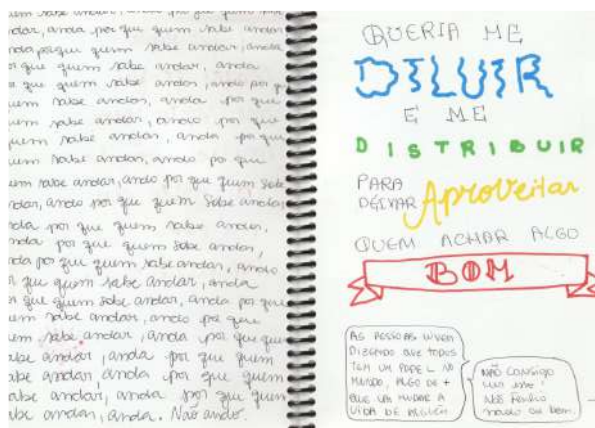 um sabe andar, anda por que quem sabe
ndar, anda por que quem sabe andar
nda por que quem sabe andar, anda
por que quem sabe andar, anda
a por que quem sabe andar, anda por q
uem sabe andar, anda por que
em sabe andar, anda por que
quem sabe andar, anda por que
uem sabe andar, anda por que
uem sabe andar, anda por que quem sabe
ndar, anda por que quem sabe andar
nda por que quem sabe andar,
nda por que quem sabe andar,
nda por que quem sabe andar, anda
a por que quem sabe andar, anda
or que quem sabe andar, anda por que
m sabe andar, anda por que
em sabe andar, anda por que que
abe andar, anda por que quem
abe andar, anda por que quem
abe andar, anda por que quem
abe andar, anda. Não ando.
QUERIA ME
DILUIR
E ME
DISTRIBUIR
PARA
DEIXAR Aproveitar
QUEM ACHAR ALGO
BOM
AS PESSOAS VIVEM
DIZENDO QUE TODOS
TEM UM PAPEL NO
MUNDO, ALGO DE +
QUE VAI MUDAR A
VIDA DE ALGUÉM
NÃO CONSIGO
ver isso!
Não tenho
nada de bom.